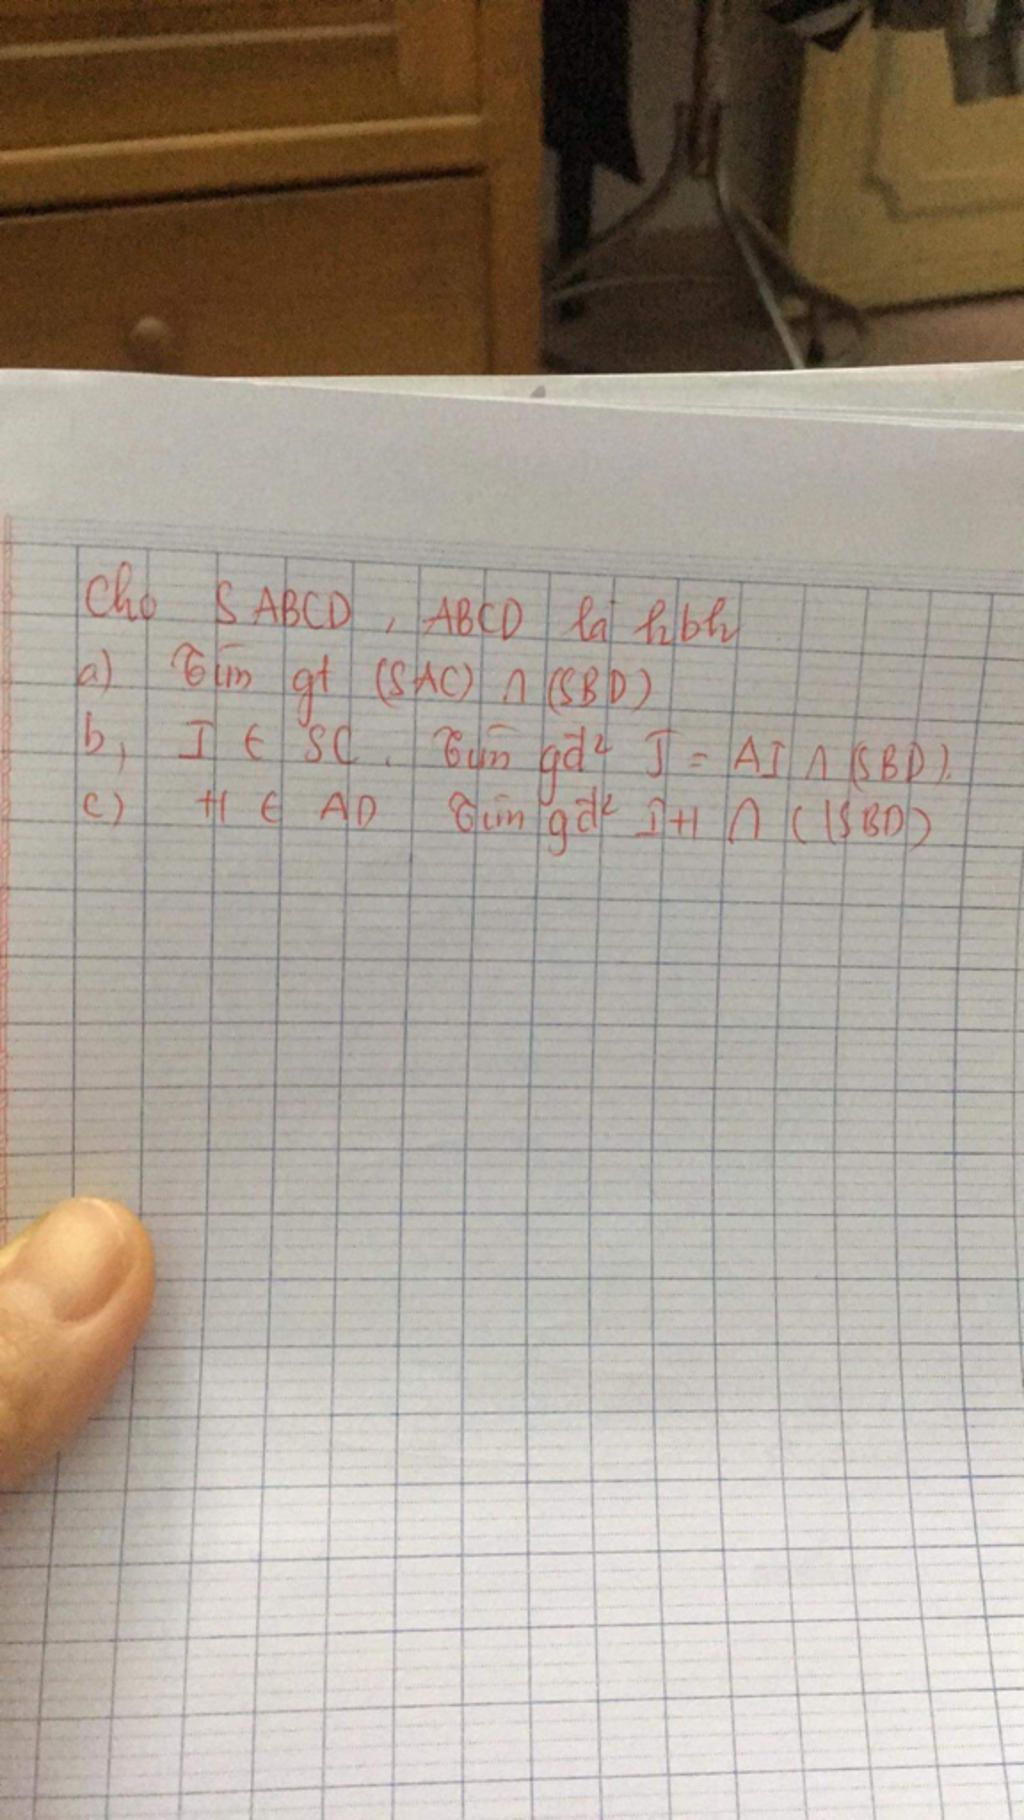 Cho SABCD, ABCD là hbh
a) Tìm gt (SAC) ∩ (SBD)
b, I ∈ SC. Tìm gđ² J = AI ∩ (SBD).
c) H ∈ AD Tìm gđ² IH ∩ (SBD)